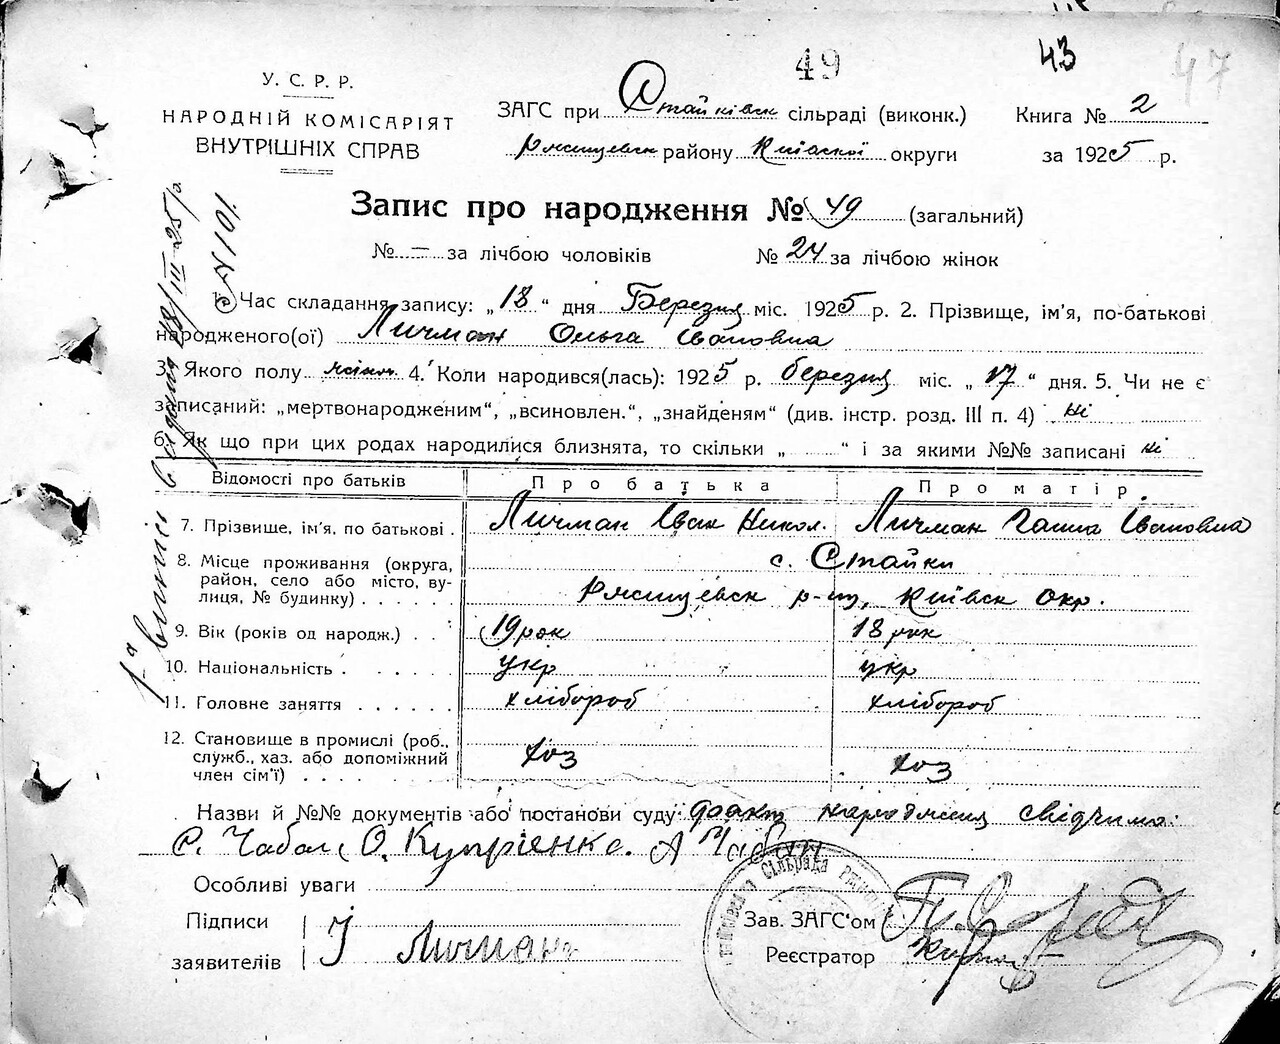 49
43
47
У. С. Р. Р.
НАРОДНІЙ КОМІСАРІЯТ
ВНУТРІШНІХ СПРАВ
ЗАГС при Стайківск сільраді (виконк.)
Ржищевск району Київской округи
Книга № 2
за 1925 р.
Запис про народження № 49 (загальний)
№ = за лічбою чоловіків № 24 за лічбою жінок
1. Час складання запису: „18“ дня Березня міс. 1925 р. 2. Прізвище, ім'я, по-батькові
народженого(ої) Личман Ольга Івановна
3. Якого полу жіноч 4. Коли народився(лась): 1925 р. березня міс. „17“ дня. 5. Чи не є
записаний: „мертвонародженим“, „всиновлен.“, „знайденям“ (див. інстр. розд. III п. 4) ні
6. Як що при цих родах народилися близнята, то скільки „ “ і за якими №№ записані ні
Відомості про батьків Про батька Про матір.
7. Прізвище, ім'я, по батькові . Личман Іван Никол. Личман Ганна Івановна
8. Місце проживання (округа,
район, село або місто, ву-
лиця, № будинку) . . . . . .
с. Стайки
Ржищевск р-ну, Київск окр.
9. Вік (років од народж.) . . 19 рок 18 рок
10. Національність . . . . . укр укр
11. Головне заняття . . . . . . хлібороб хлібороб
12. Становище в промислі (роб.,
служб., хаз. або допоміжний
член сім'ї) . . . . . . . .
хоз хоз
Назви й №№ документів або постанови суду: факт народження свідчимо:
С. Чабан, О. Купрієнко. А Чабан
Особливі уваги
Підписи
заявителів І Личман
Зав. ЗАГС'ом
Реєстратор
Сільрада
1-а випис видана 18/III-25 р.
№ 101